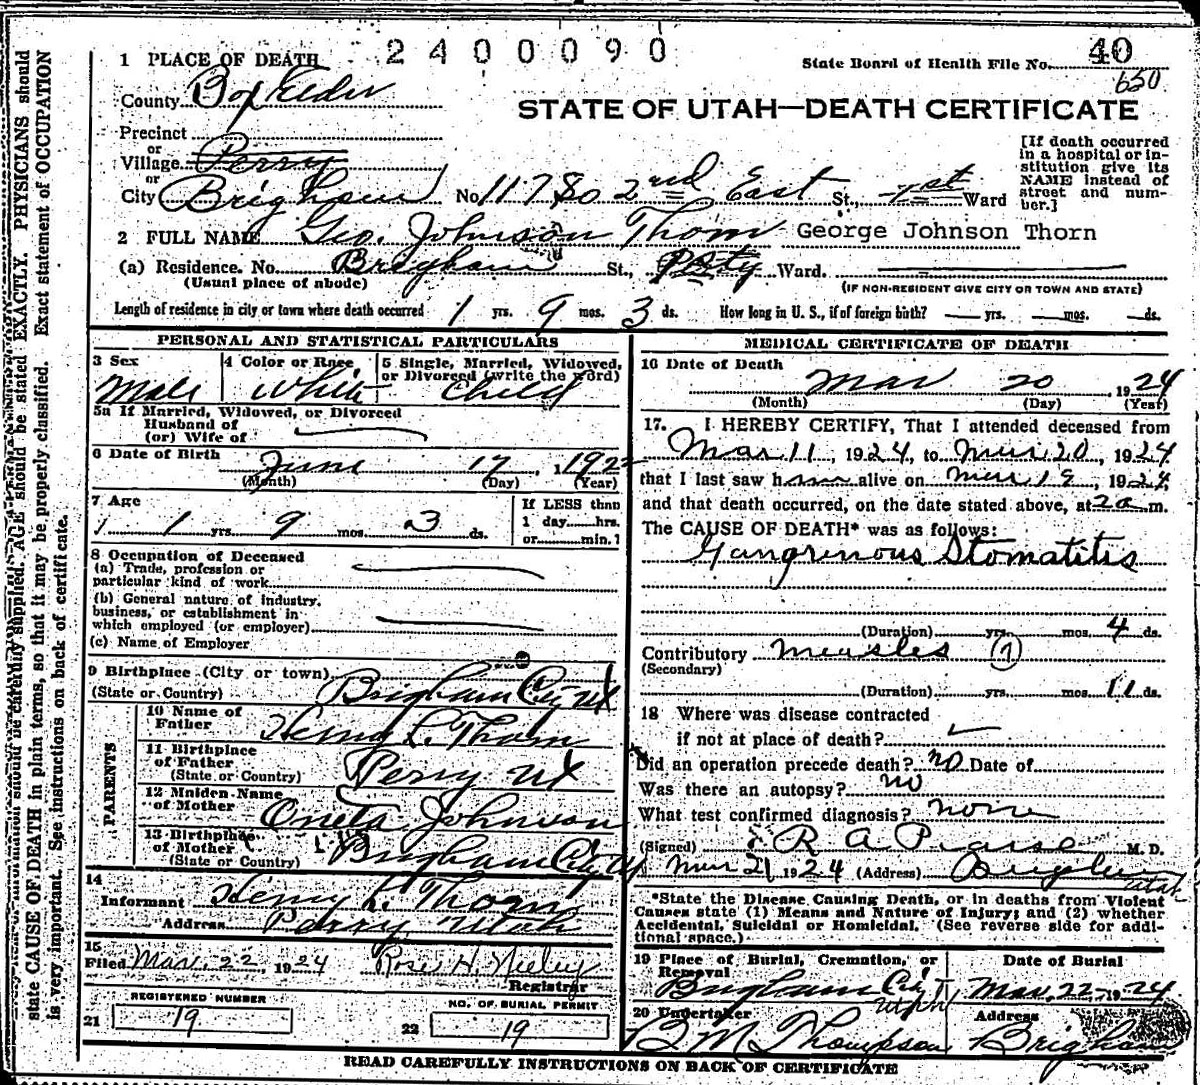 2400090
40
State Board of Health File No.
650
1 PLACE OF DEATH
County Box Elder
STATE OF UTAH—DEATH CERTIFICATE
Precinct
or
Village Perry
or
City Brigham No. 117 So 2nd East St., 1st Ward
[If death occurred
in a hospital or in-
stitution give its
NAME instead of
street and num-
ber.]
2 FULL NAME Geo. Johnson Thorn George Johnson Thorn
(a) Residence. No. Brigham St., Ward.
(Usual place of abode)
(IF NON-RESIDENT GIVE CITY OR TOWN AND STATE)
Length of residence in city or town where death occurred 1 yrs. 9 mos. 3 ds. How long in U. S., if of foreign birth? yrs. mos. ds.
PERSONAL AND STATISTICAL PARTICULARS
3 Sex
Male
4 Color or Race
White
5 Single, Married, Widowed,
or Divorced (write the word)
Child
5a If Married, Widowed, or Divorced
Husband of
(or) Wife of
6 Date of Birth
June 17, 1922
(Month) (Day) (Year)
7 Age
1 yrs. 9 mos. 3 ds.
If LESS than
1 day hrs.
or min.?
8 Occupation of Deceased
(a) Trade, profession or
particular kind of work
(b) General nature of industry,
business, or establishment in
which employed (or employer)
(c) Name of Employer
9 Birthplace (City or town)
(State or Country) Brigham City Ut
PARENTS
10 Name of
Father Henry L. Thorn
11 Birthplace
of Father
(State or Country) Perry Ut
12 Maiden Name
of Mother Oneta Johnson
13 Birthplace
of Mother
(State or Country) Brigham City U
14
Informant Henry L. Thorn
Address Perry Utah
15
Filed Mar. 22, 1924 Rose H. Neeley
Registrar
REGISTERED NUMBER
21 19
NO. OF BURIAL PERMIT
22 19
MEDICAL CERTIFICATE OF DEATH
16 Date of Death
Mar 20, 1924
(Month) (Day) (Year)
17. I HEREBY CERTIFY, That I attended deceased from
Mar 11, 1924, to Mar 20, 1924
that I last saw him alive on Mar 19, 1924,
and that death occurred, on the date stated above, at 2 a m.
The CAUSE OF DEATH* was as follows:
Gangrenous Stomatitis
(Duration) yrs. mos. 4 ds.
Contributory Measles
(Secondary)
(Duration) yrs. mos. 11 ds.
18 Where was disease contracted
if not at place of death?
Did an operation precede death? no Date of
Was there an autopsy? no
What test confirmed diagnosis? none
(Signed) R A Pearse M. D.
Mar 21 1924 (Address) Brigham Utah
*State the Disease Causing Death, or in deaths from Violent
Causes state (1) Means and Nature of Injury; and (2) whether
Accidental, Suicidal or Homicidal. (See reverse side for addi-
tional space.)
19 Place of Burial, Cremation, or
Removal
Brigham City Utah
Date of Burial
Mar. 22, 1924
20 Undertaker
B M Thompson
Address
Brigham
READ CAREFULLY INSTRUCTIONS ON BACK OF CERTIFICATE
information should be carefully supplied. AGE should be stated EXACTLY. PHYSICIANS should
state CAUSE OF DEATH in plain terms, so that it may be properly classified. Exact statement of OCCUPATION
is very important. See instructions on back of certificate.